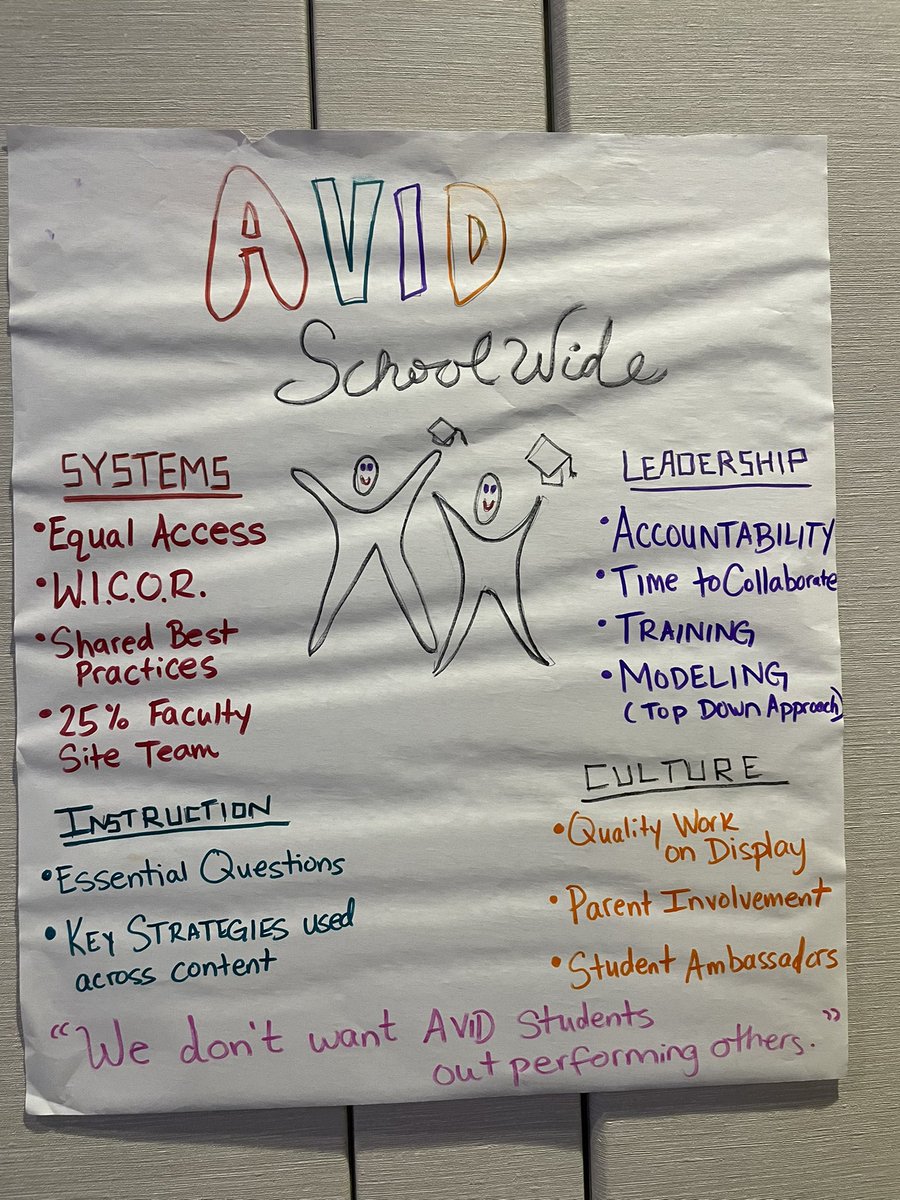 AVID
School Wide
SYSTEMS
• Equal Access
• W.I.C.O.R.
• Shared Best
Practices
• 25% Faculty
Site Team
INSTRUCTION
• Essential Questions
• KEY STRATEGIES used
across content
LEADERSHIP
• ACCOUNTABILITY
• Time to Collaborate
• TRAINING
• MODELING
(TOP DOWN Approach)
CULTURE
• Quality Work
on Display
• Parent Involvement
• Student Ambassadors
"We don't want AVID Students
out performing others."